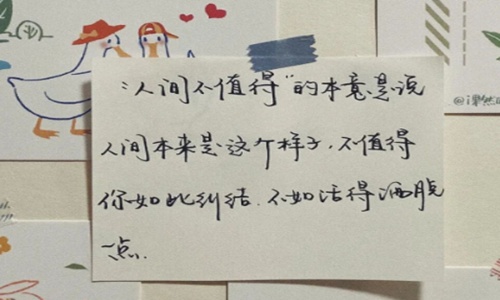 “人间不值得”的本意是说
人间本来是这个样子，不值得
你如此纠结.不如活得洒脱
一点.